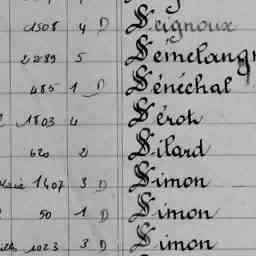 1508 4 D Seignoux
2289 5 Sémelang
485 1 D Sénéchal
1803 4 Sérot
620 2 Silard
1407 3 D Simon
50 1 D Simon
1023 3 D Simon